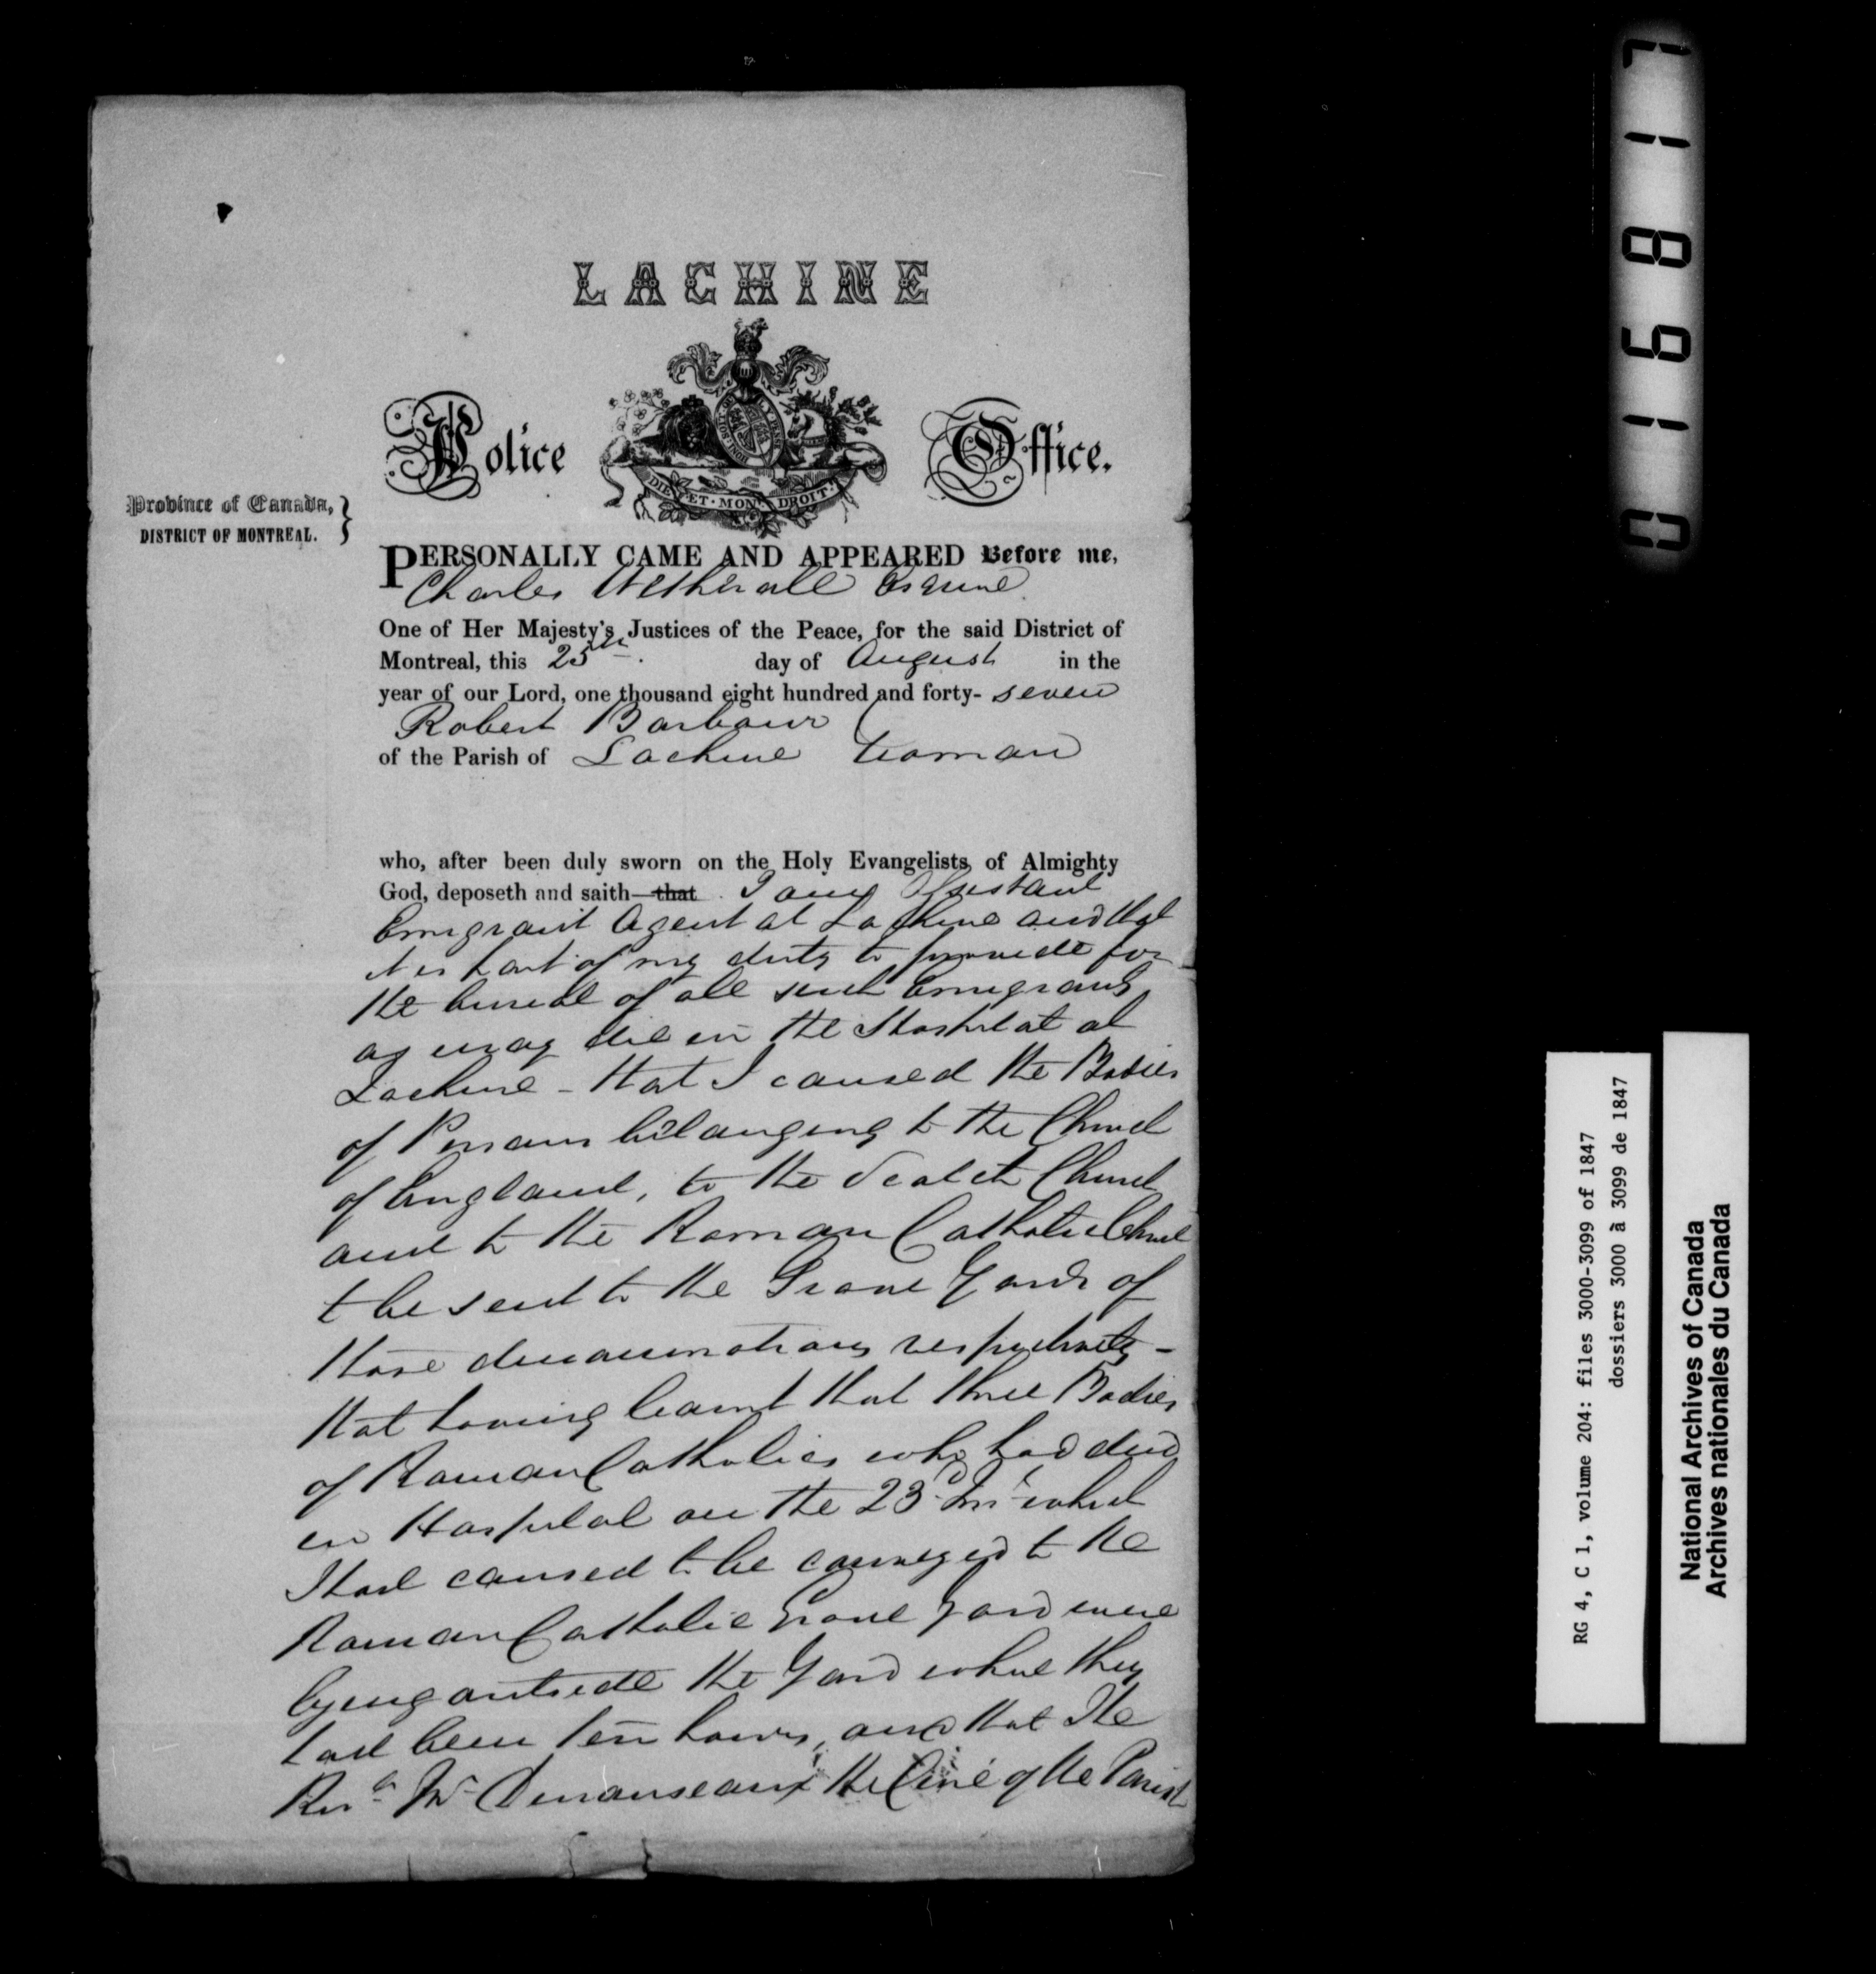 LACHINE
Police Office.
HONI SOIT QUI MAL Y PENSE
DIEU·ET·MON·DROIT·
Province of Canada,
DISTRICT OF MONTREAL.
PERSONALLY CAME AND APPEARED Before me,
Charles Wetherall Esquire
One of Her Majesty's Justices of the Peace, for the said District of
Montreal, this 25th. day of August in the
year of our Lord, one thousand eight hundred and forty- seven
Robert Barbour
of the Parish of Lachine Yeoman
who, after been duly sworn on the Holy Evangelists of Almighty
God, deposeth and saith—that. I am Assistant
Emigrant Agent at Lachine and that
it is part of my duty to provide for
the burial of all such Emigrants
as may die in the Hospital at
Lachine - that I caused the Bodies
of Persons belonging to the Church
of England, to the Scotch Church
and to the Roman Catholic Church
to be sent to the Grave Yards of
those denominations respectively -
that having learnt that three Bodies
of Roman Catholics who had died
in Hospital on the 23d Inst which
I had caused to be conveyed to the
Roman Catholic Grave Yard were
lying outside the Yard where they
had been ten hours, and that The
Revd Mr the Curé of the Parish
016817
RG 4, C 1, volume 204: files 3000-3099 of 1847
dossiers 3000 à 3099 de 1847
National Archives of Canada
Archives nationales du Canada